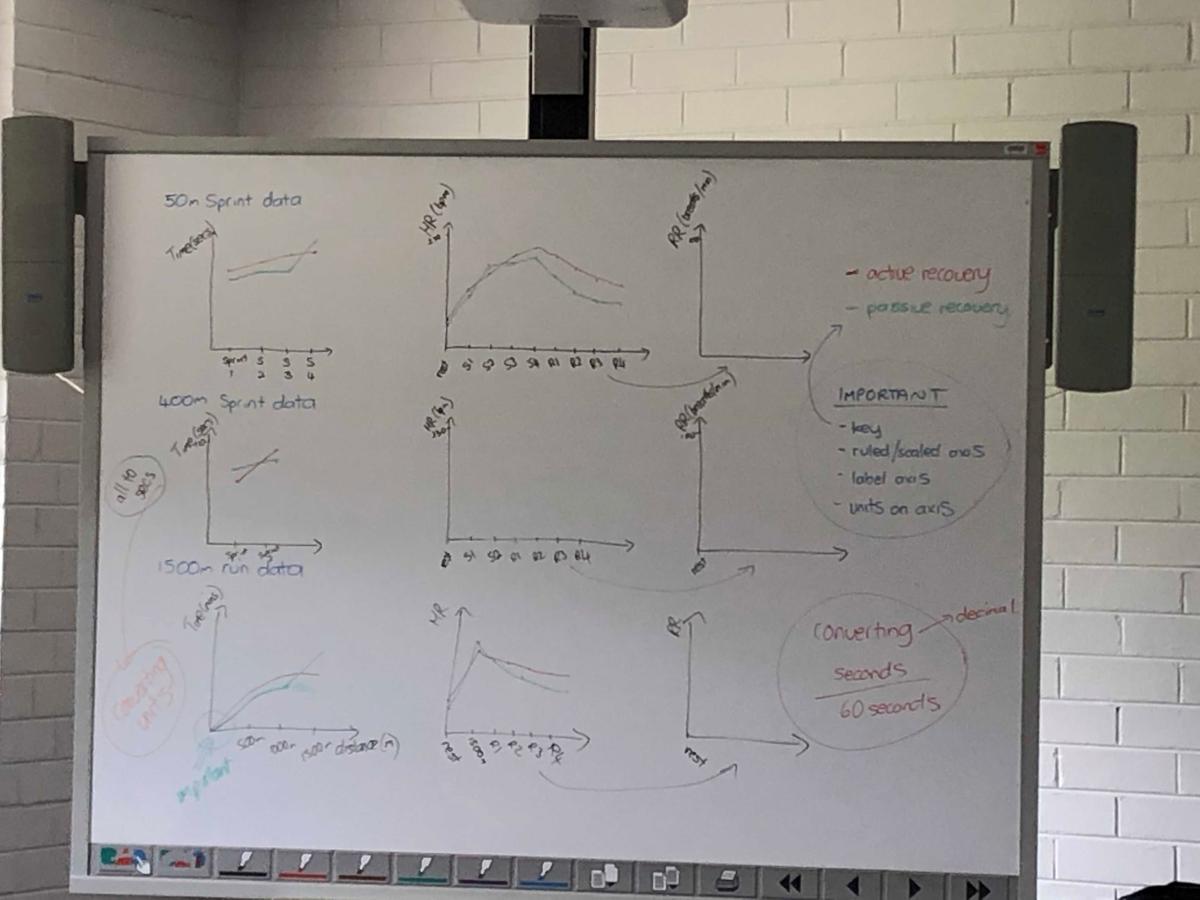 50m Sprint data
Time(secs)
Sprint 1
S 2
S 3
S 4
HR (bpm)
rest S1 S2 S3 S4 R1 R2 R3 R4
RR (breaths/min)
- active recovery
- passive recovery
400m Sprint data
Time(secs)
all to secs
HR
rest S1 S2 R1 R2 R3 R4
RR (breaths/min)
rest
IMPORTANT
- key
- ruled/scaled axis
- label axis
- units on axis
1500m run data
500m
1500m distance(m)
important
converting units
HR
rest
R1 R2 R3 R4
RR
rest
converting
decimal
seconds
60 seconds